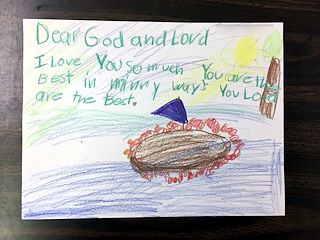 Dear God and Lord
I Love You so much You are the
Best in minny ways You Lord
are the Best.